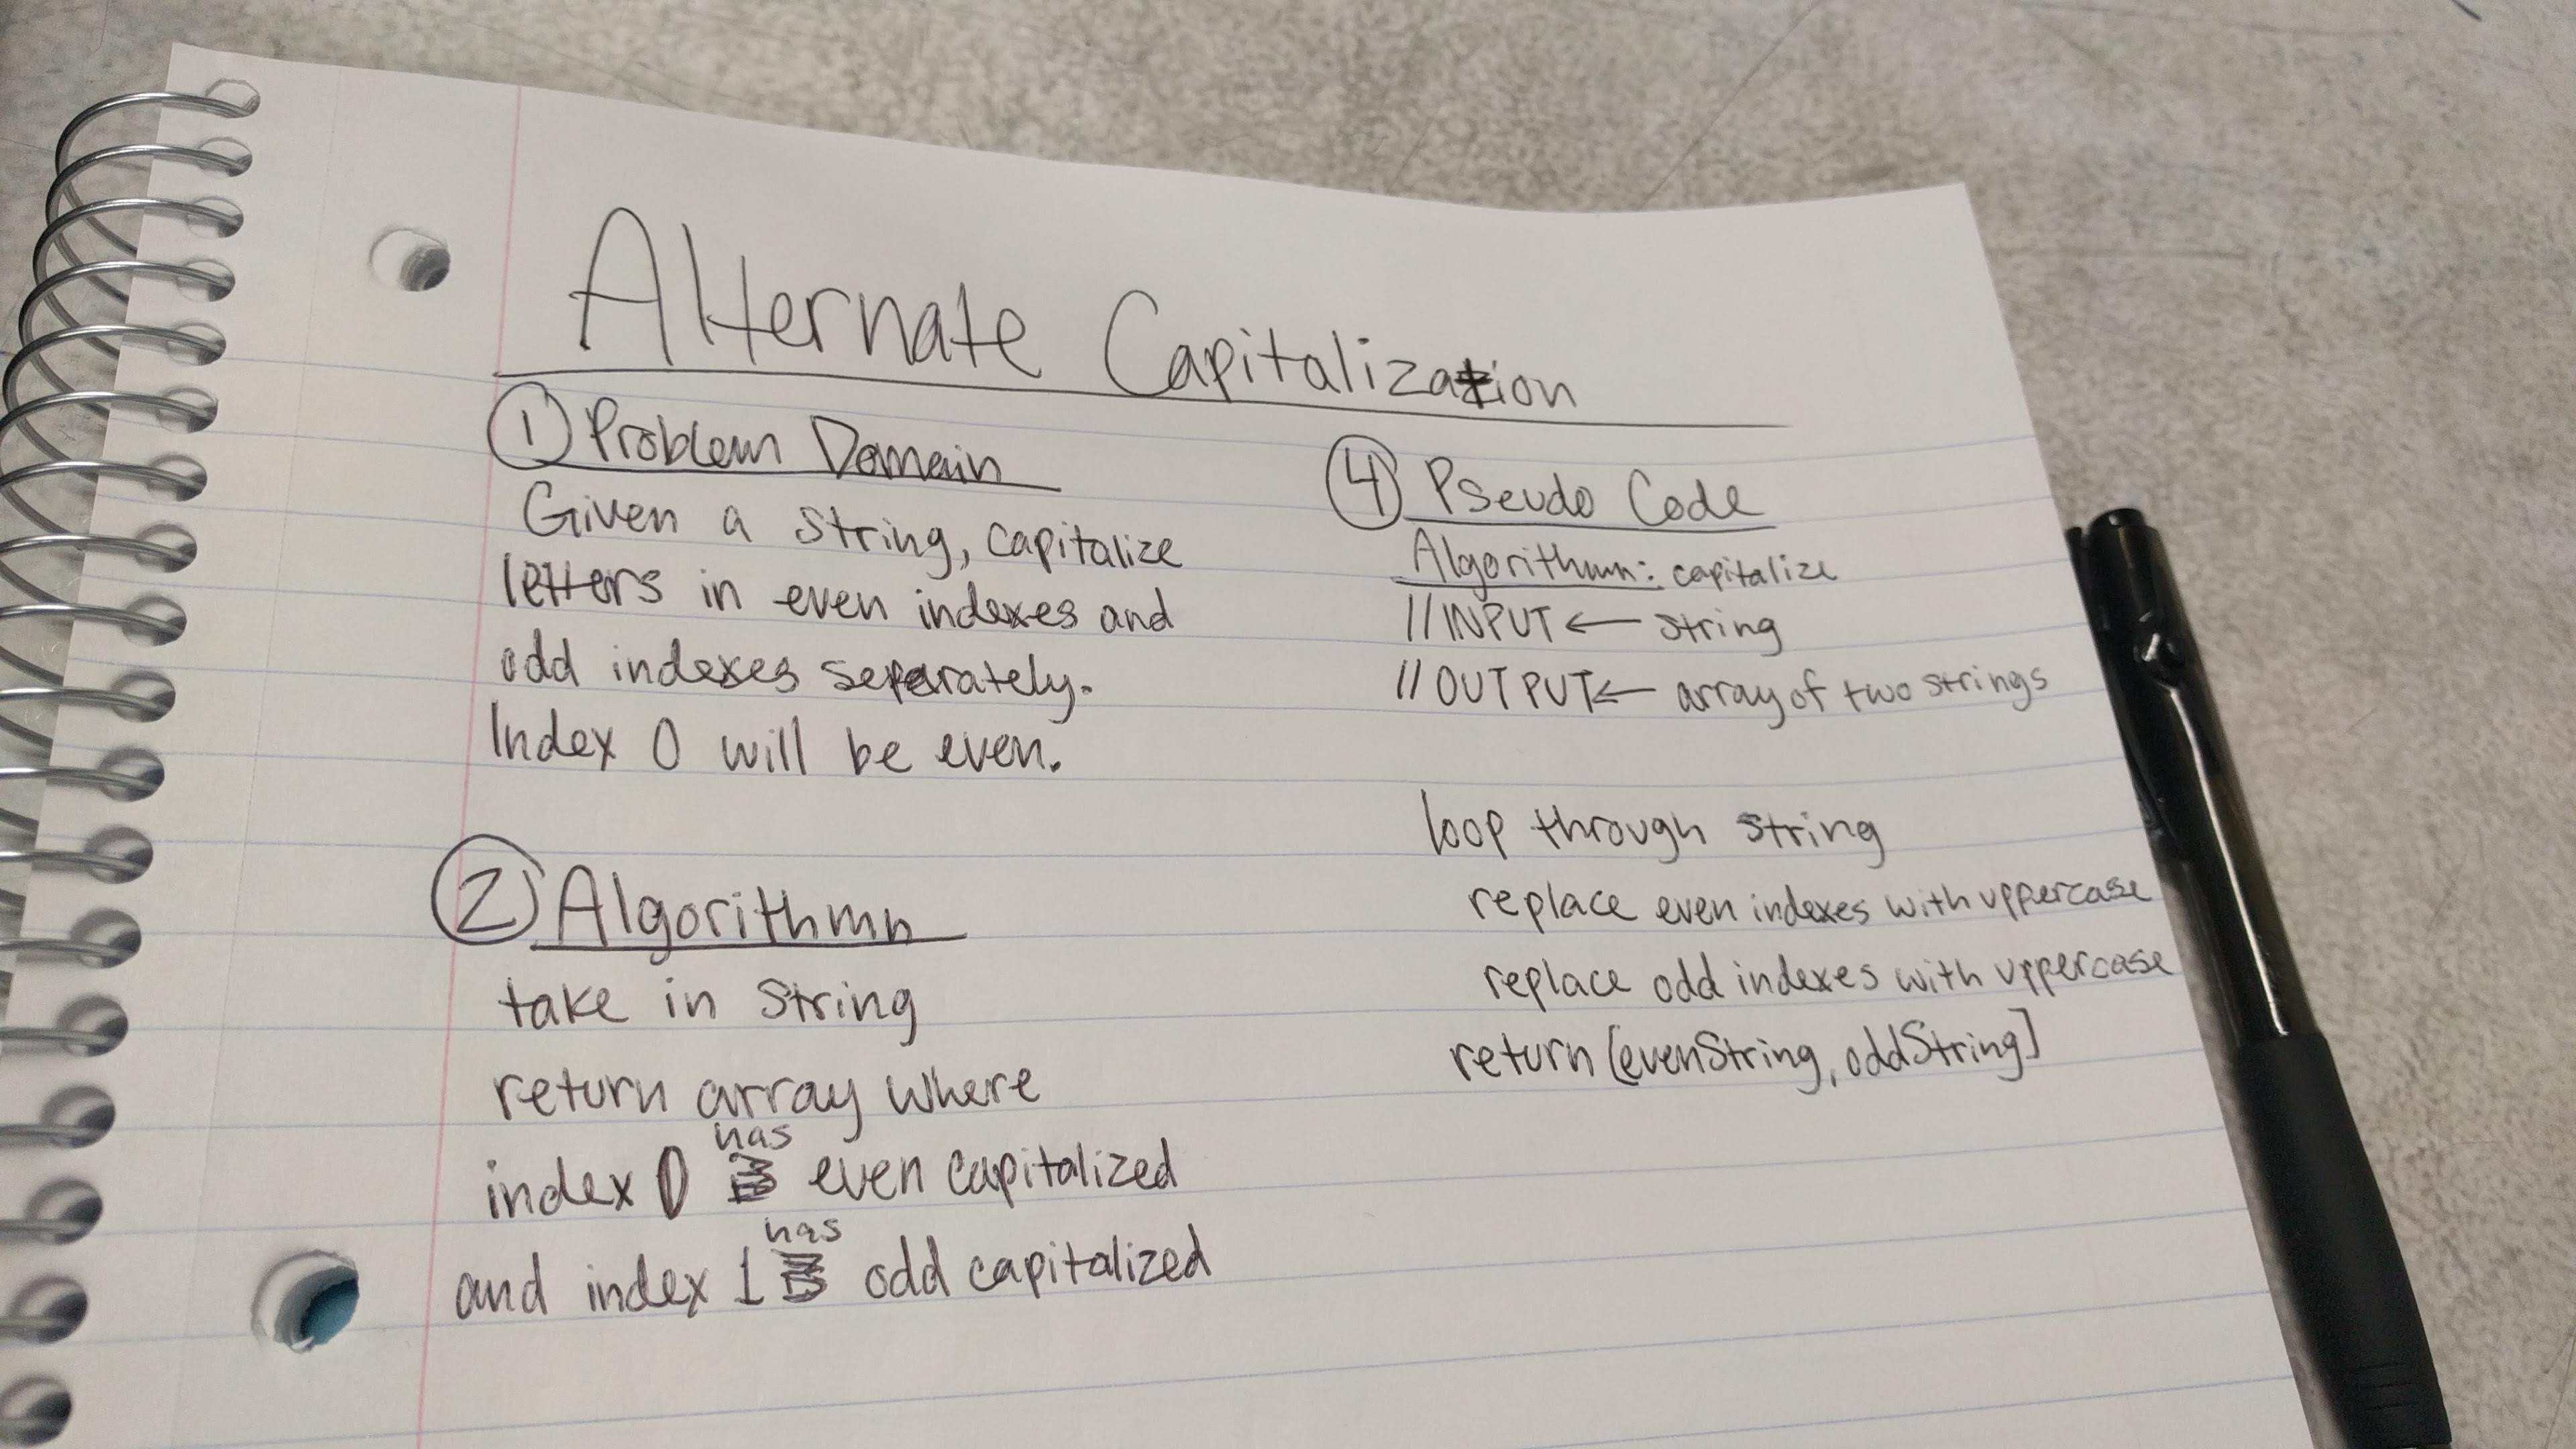 Alternate Capitalization
① Problem Domain
Given a string, capitalize
letters in even indexes and
odd indexes separately.
Index 0 will be even.
② Algorithmn
take in string
return array where
has
index 0 even capitalized
has
and index 1 odd capitalized
④ Pseudo Code
Algorithmn: capitalize
//INPUT ← string
//OUTPUT ← array of two strings
loop through string
replace even indexes with uppercase
replace odd indexes with uppercase
return [evenString, oddString]